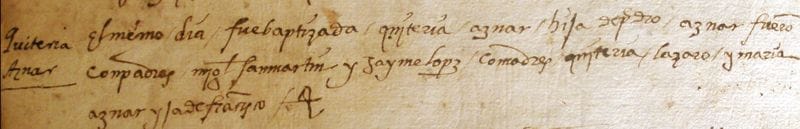 Quiteria
Aznar
El mesmo dia / fue baptizada / quiteria / aznar / hija de pedro / aznar fuerō
Conpadres migl sanmartin y Jayme lopz / Comadres quiteria / lazaro / y maria
aznar yja de franco /